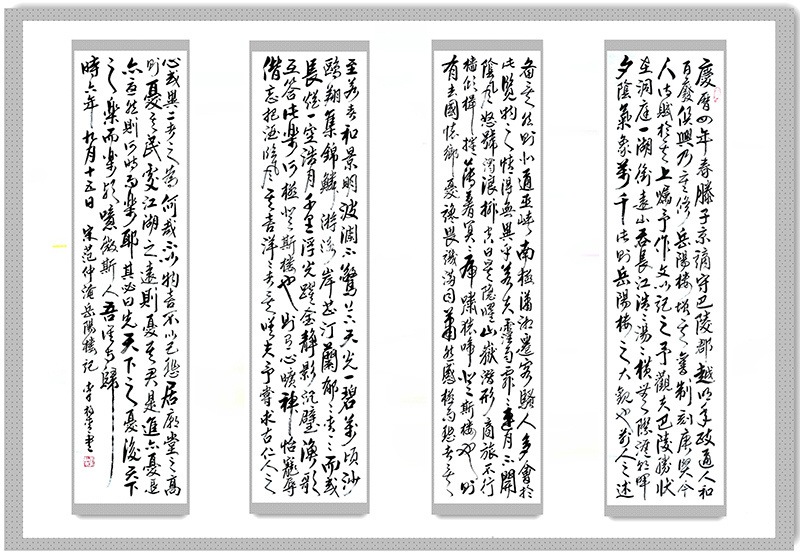 慶曆四年春滕子京謫守巴陵郡越明年政通人和
百廢俱興乃重修岳陽樓增其舊制刻唐賢今
人詩賦於其上屬予作文以記之予觀夫巴陵勝狀
在洞庭一湖銜遠山吞長江浩浩湯湯橫無際涯朝暉
夕陰氣象萬千此則岳陽樓之大觀也前人之述
備矣然則北通巫峽南極瀟湘遷客騷人多會於
此覽物之情得無異乎若夫霪雨霏霏連月不開
陰風怒號濁浪排空日星隱曜山嶽潛形商旅不行
檣傾楫摧薄暮冥冥虎嘯猿啼登斯樓也則
有去國懷鄉憂讒畏譏滿目蕭然感極而悲者矣
至若春和景明波瀾不驚上下天光一碧萬頃沙
鷗翔集錦鱗游泳岸芷汀蘭郁郁青青而或
長煙一空浩月千里浮光躍金靜影沉璧漁歌
互答此樂何極登斯樓也則有心曠神怡寵辱
偕忘把酒臨風其喜洋洋者矣嗟夫予嘗求古仁人之
心或異二者之為何哉不以物喜不以己悲居廟堂之高
則憂其民處江湖之遠則憂其君是進亦憂退
亦憂然則何時而樂耶其必曰先天下之憂後天下
之樂而樂歟噫微斯人吾誰與歸
時六年九月十五日 宋范仲淹岳陽樓記 書